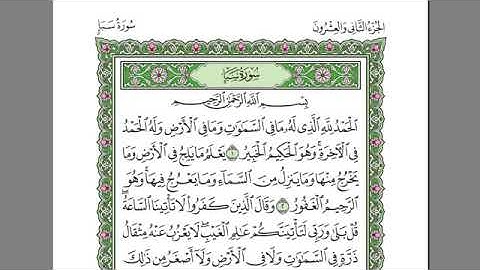 الجزء الثاني والعشرون
سورة سبإ
سورة سبإ
بسم الله الرحمن الرحيم
الحمد لله الذي له ما في السموت وما في الأرض وله الحمد
في الأخرة وهو الحكيم الخبير ١ يعلم ما يلج في الأرض وما
يخرج منها وما ينزل من السماء وما يعرج فيها وهو
الرحيم الغفور ٢ وقال الذين كفروا لا تأتينا الساعة
قل بلى وربي لتأتينكم علم الغيب لا يعزب عنه مثقال
ذرة في السموت ولا في الأرض ولا أصغر من ذلك